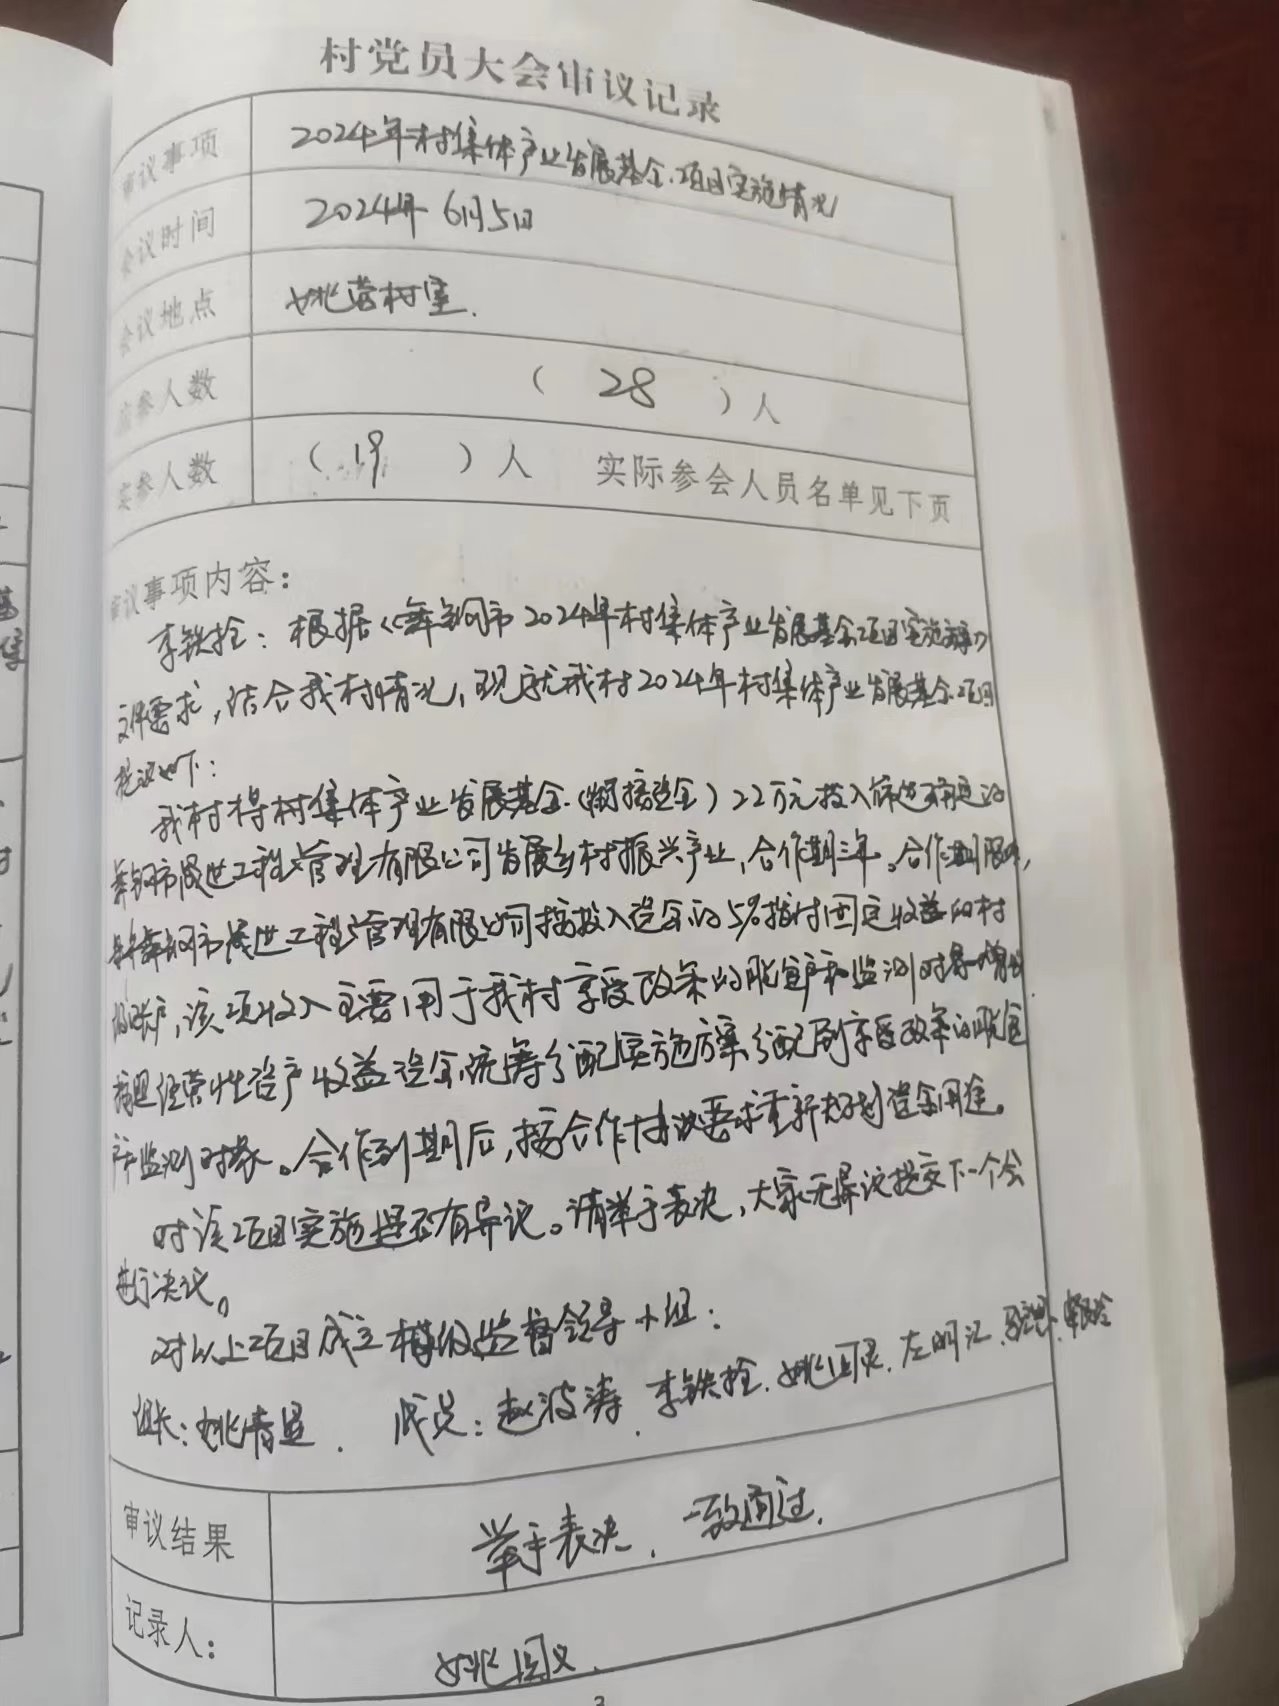 村党员大会审议记录
审议事项 2024年村集体产业发展基金项目实施情况
会议时间 2024年6月5日
会议地点 姚营村室.
应参人数 ( 28 ) 人
实参人数 ( 19 ) 人 实际参会人员名单见下页
审议事项内容:
李铁拴: 根据《舞钢市2024年村集体产业发展基金项目实施方案》
文件要求, 结合我村情况, 现就我村2024年村集体产业发展基金项目
提议如下:
我村将村集体产业发展基金(衔接资金)22万元投入筛选确定的
舞钢市 工程管理有限公司发展乡村振兴产业, 合作期三年。合作期限内,
舞钢市 工程管理有限公司按投入资金的5%拨付固定收益的村
账户, 该项收入主要用于我村享受政策的脱贫户和监测对象增收
按照经营性资产收益资金统筹分配实施方案分配到享受政策的脱贫
户和监测对象。合作到期后, 按合作协议要求重新规划资金用途。
对该项目实施是否有异议。请举手表决, 大家无异议提交下一个会
进行决议。
对以上项目成立村级监督领导小组:
组长: 姚清显. 成员: 赵波涛. 李铁拴. 左明记.
审议结果 举手表决, 一致通过.
记录人: 姚国义.
3